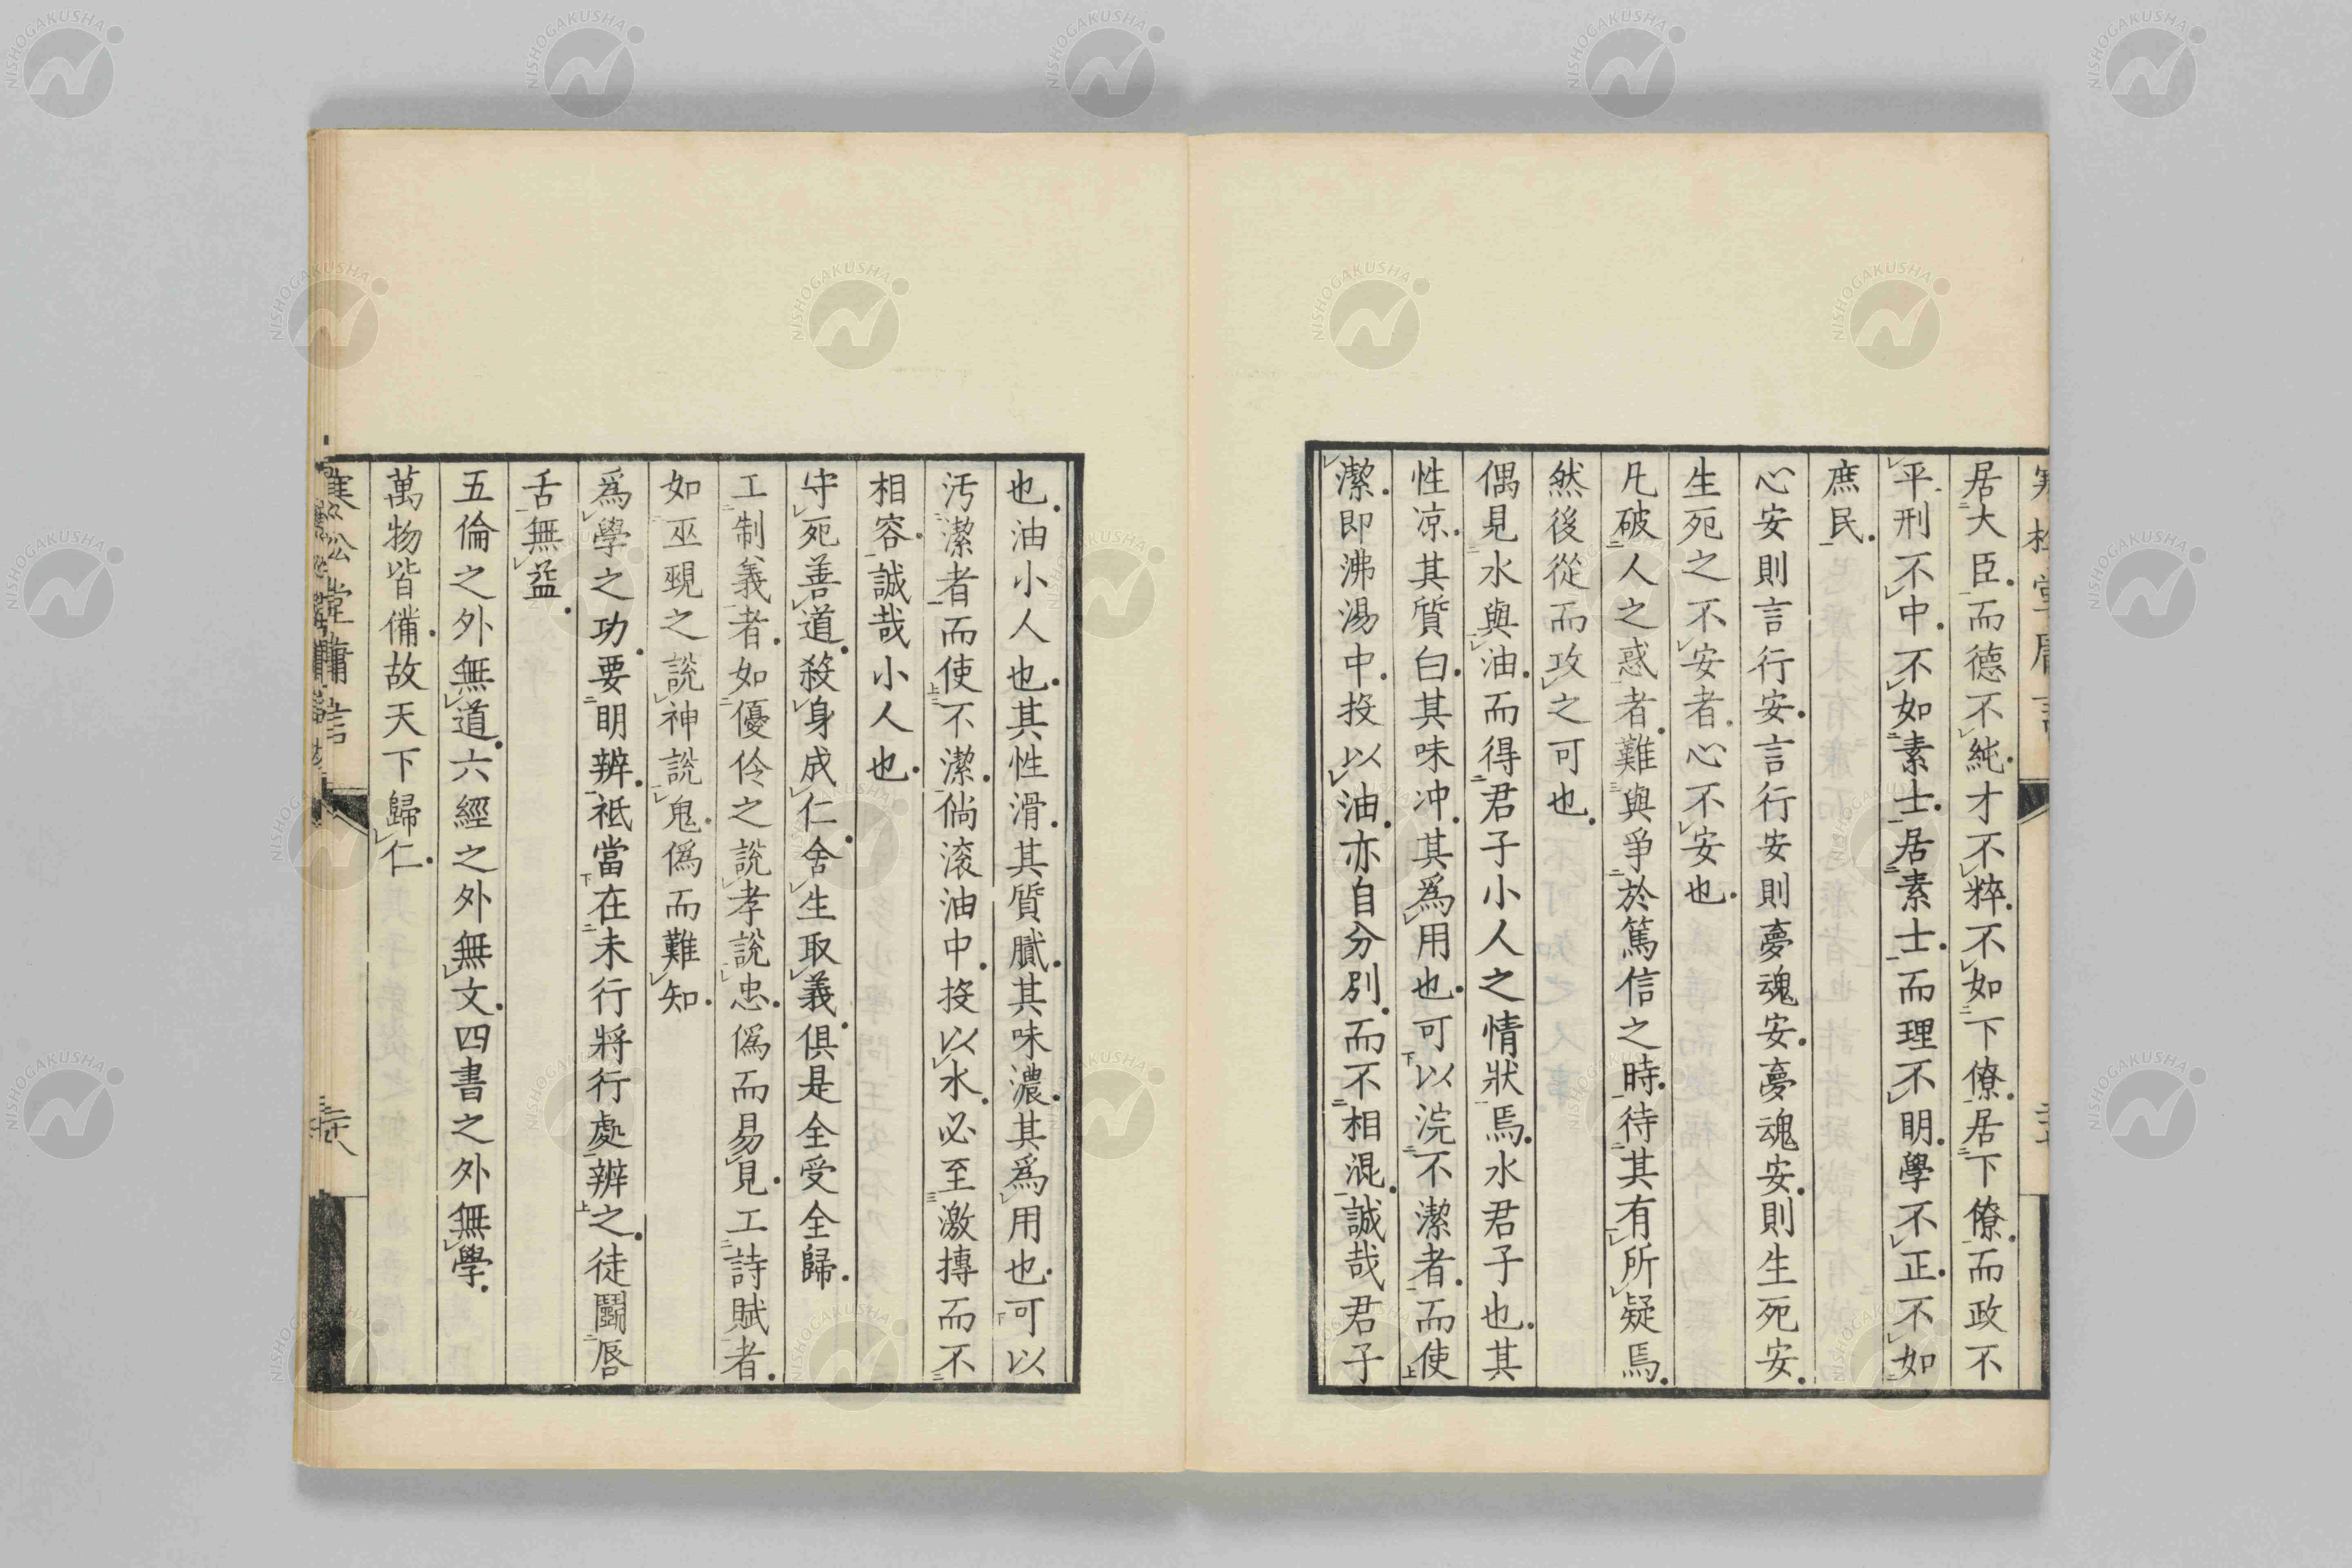 居大臣而德不純才不粹不如下僚居下僚而政不
平刑不中不如素士居素士而理不明學不正不如
庶民
心安則言行安言行安則夢魂安夢魂安則生死安
生死之不安者心不安也
凡破人之惑者難與爭於篤信之時待其有所疑焉
然後從而攻之可也
偶見水與油而得君子小人之情狀焉水君子也其
性凉其質白其味冲其爲用也可以浣不潔者而使
潔即沸湯中投以油亦自分別而不相混誠哉君子
也油小人也其性滑其質膩其味濃其爲用也可以
汚潔者而使不潔倘滚油中投以水必至激摶而不
相容誠哉小人也
守死善道殺身成仁舍生取義俱是全受全歸
工制義者如優伶之說孝說忠僞而易見工詩賦者
如巫覡之說神說鬼僞而難知
爲學之功要明辨祗當在未行將行處辨之徒鬪唇
舌無益
五倫之外無道六經之外無文四書之外無學
萬物皆備故天下歸仁
NISHOGAKUSHA